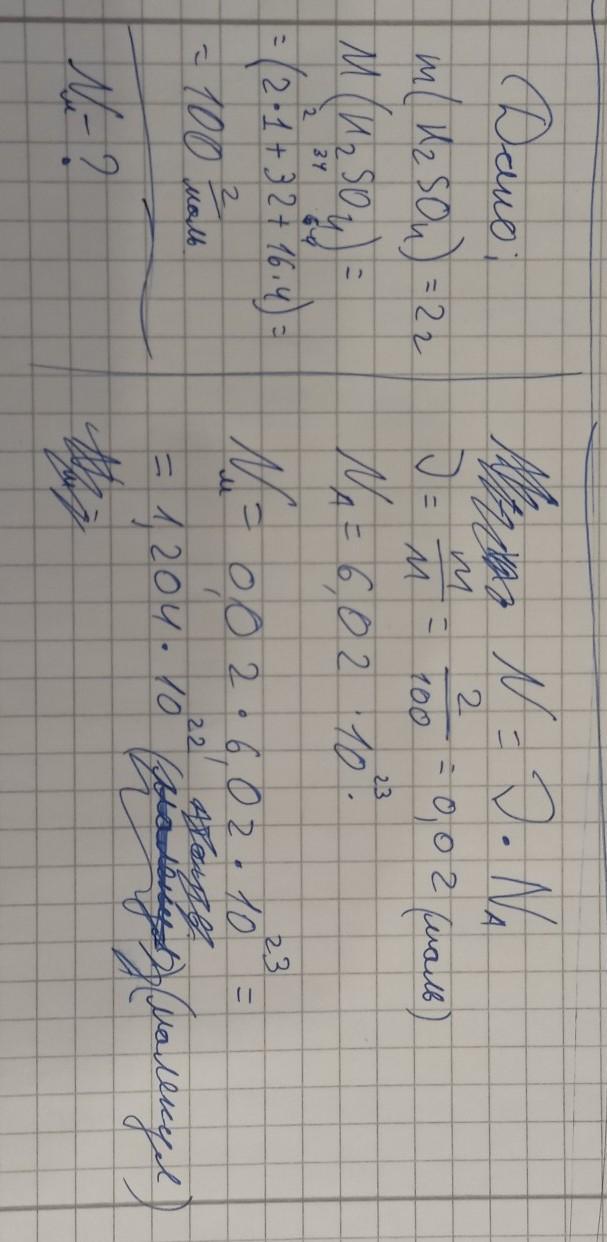 Дано:
m(H₂SO₄) = 2г
M(H₂SO₄) =
2 34 64
= (2·1+32+16·4) =
= 100 г/моль
Nм - ?
N = ν · N_A
ν = m/M = 2/100 = 0,02 (моль)
N_A = 6,02 · 10²³.
Nм = 0,02 · 6,02 · 10²³ =
= 1,204 · 10²² (малекул)